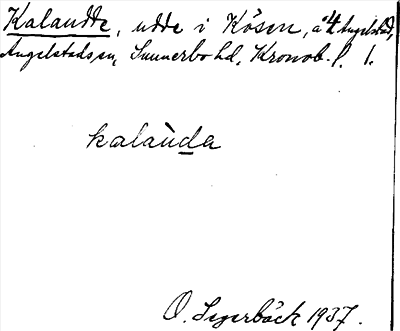 Kalaudde, udde i Kösen, å 4 Angelstad,
Angelstads sn, Sunnerbo hd, Kronob. l. 1.
kalaùda
O. Segerbäck 1937.